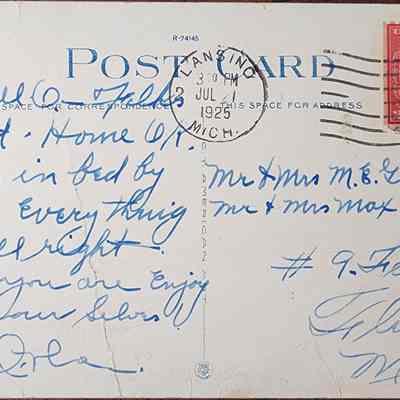 R-74145
POST CARD
SPACE FOR CORRESPONDENCE
THIS SPACE FOR ADDRESS
LANSING
3 PM
JUL 1
1925
MICH.
Folks
Home OK.
in bed by
Everything
right.
you are Enjoy
your Selves
Orla.
Mr & Mrs M.E.
Mr & Mrs Max
# 9.